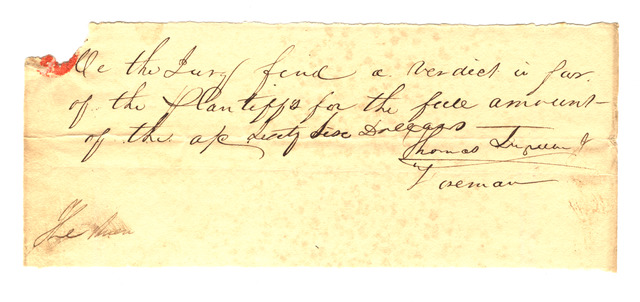 We the Jury find a verdict in fav.
of the Plantiffs for the full amount
of the a/c Sixty Six Dollars
Thomas
Foreman
The